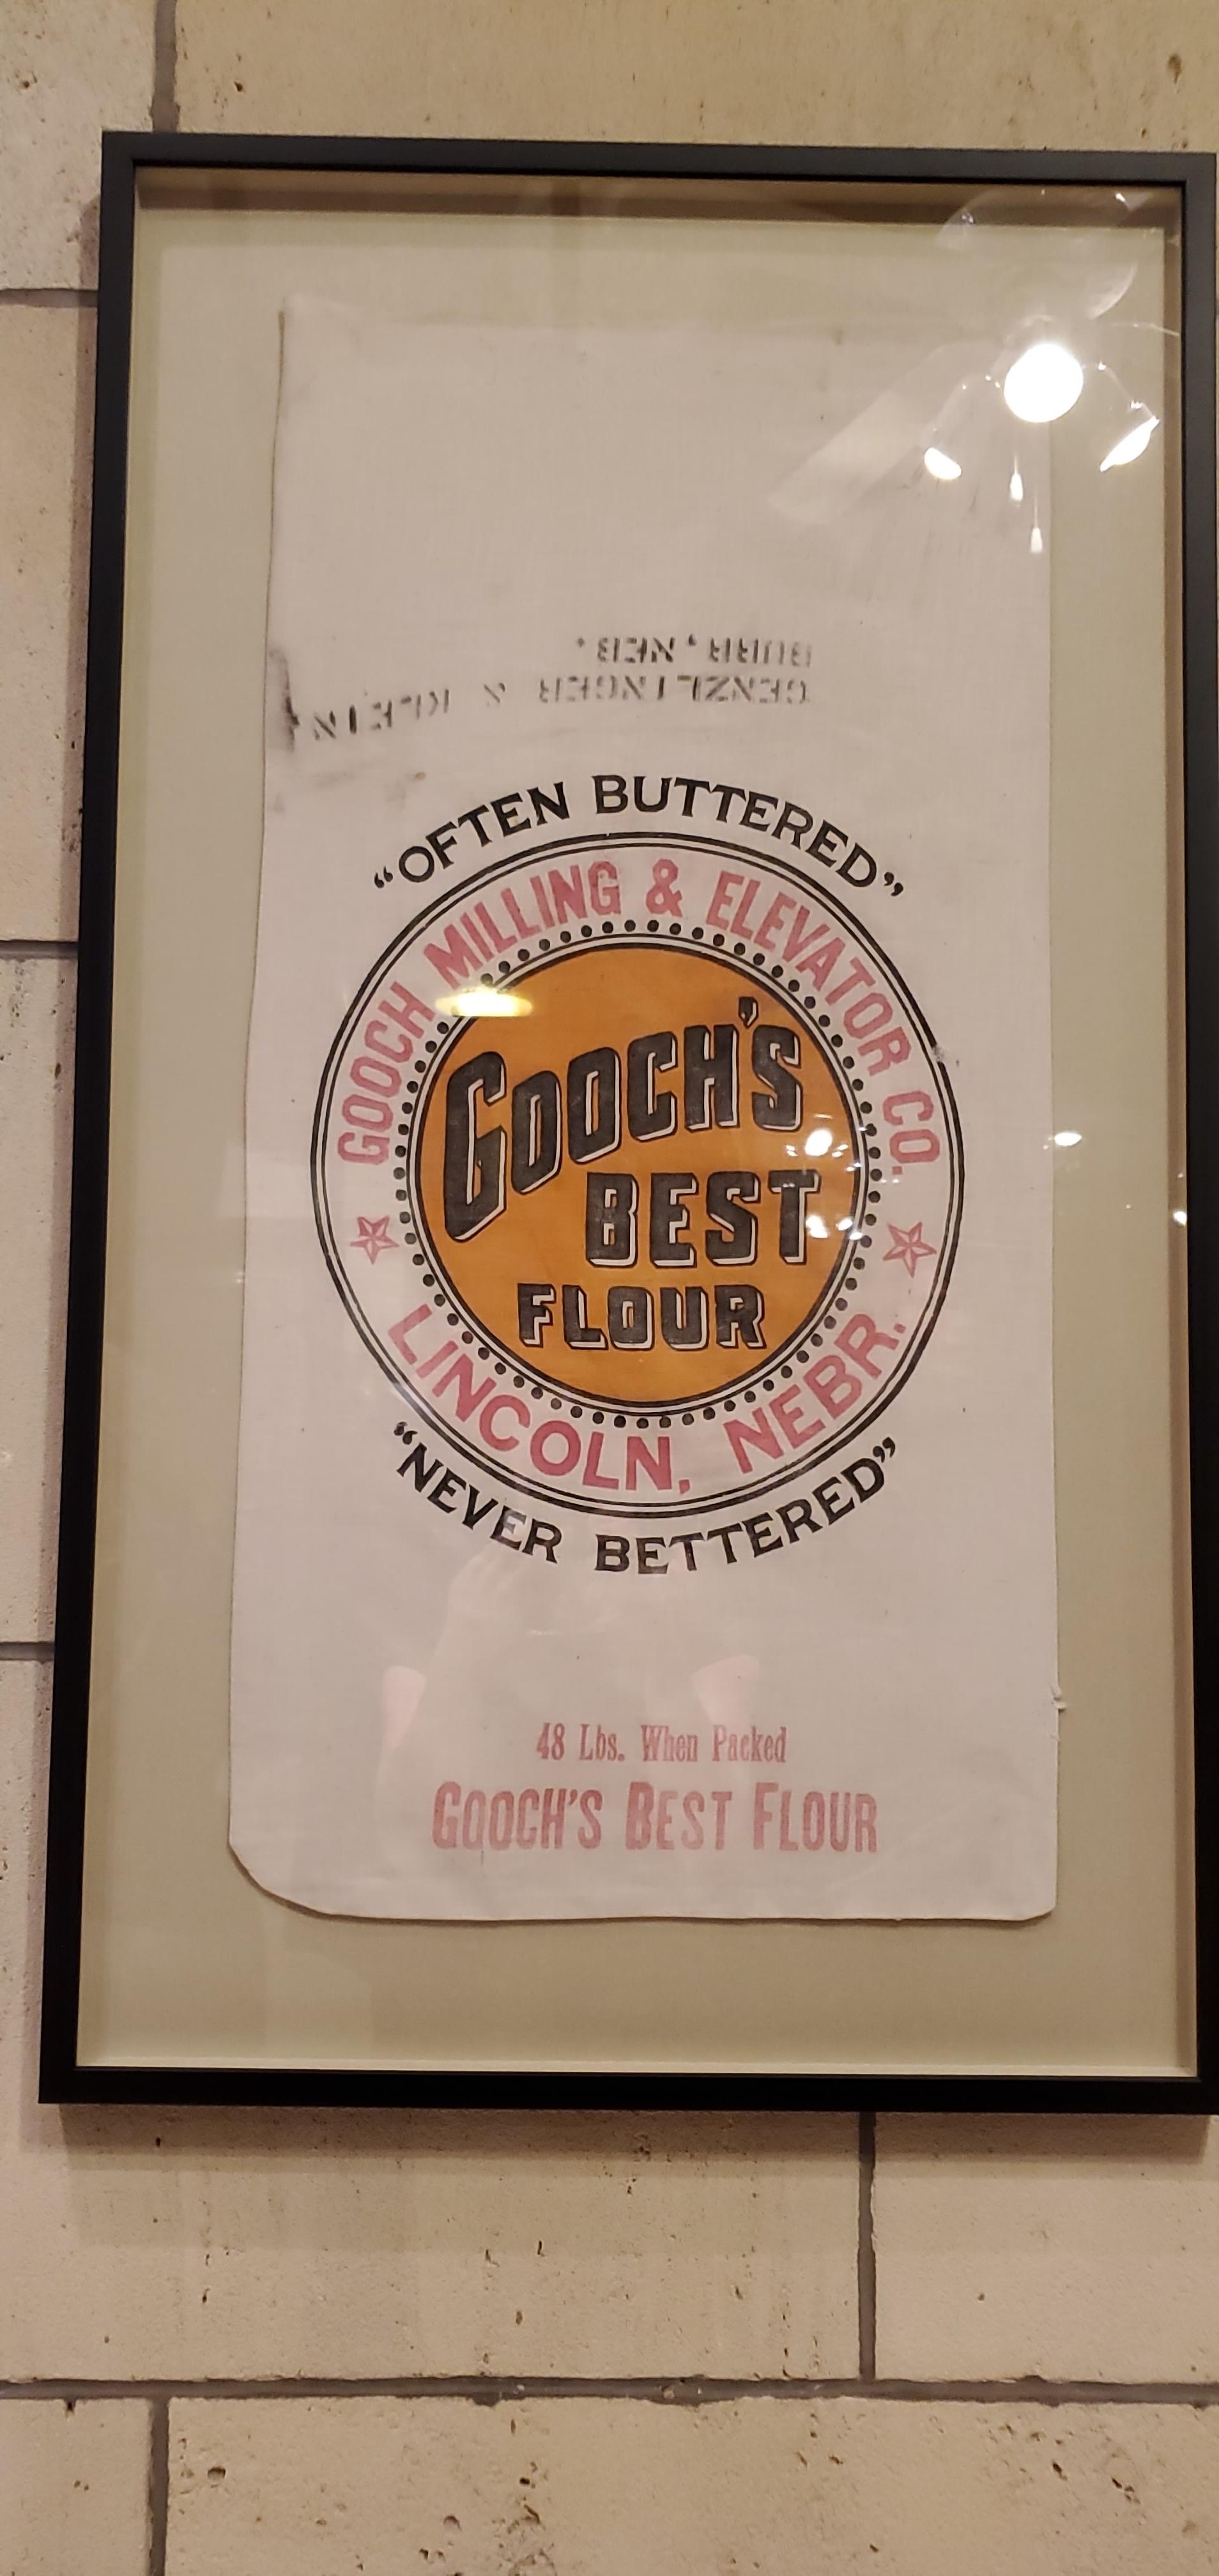 GENZLINGER & KLEIN
BURR, NEB.
“OFTEN BUTTERED”
GOOCH MILLING & ELEVATOR CO.
GOOCH'S
BEST
FLOUR
LINCOLN, NEBR.
“NEVER BETTERED”
48 Lbs. When Packed
GOOCH'S BEST FLOUR